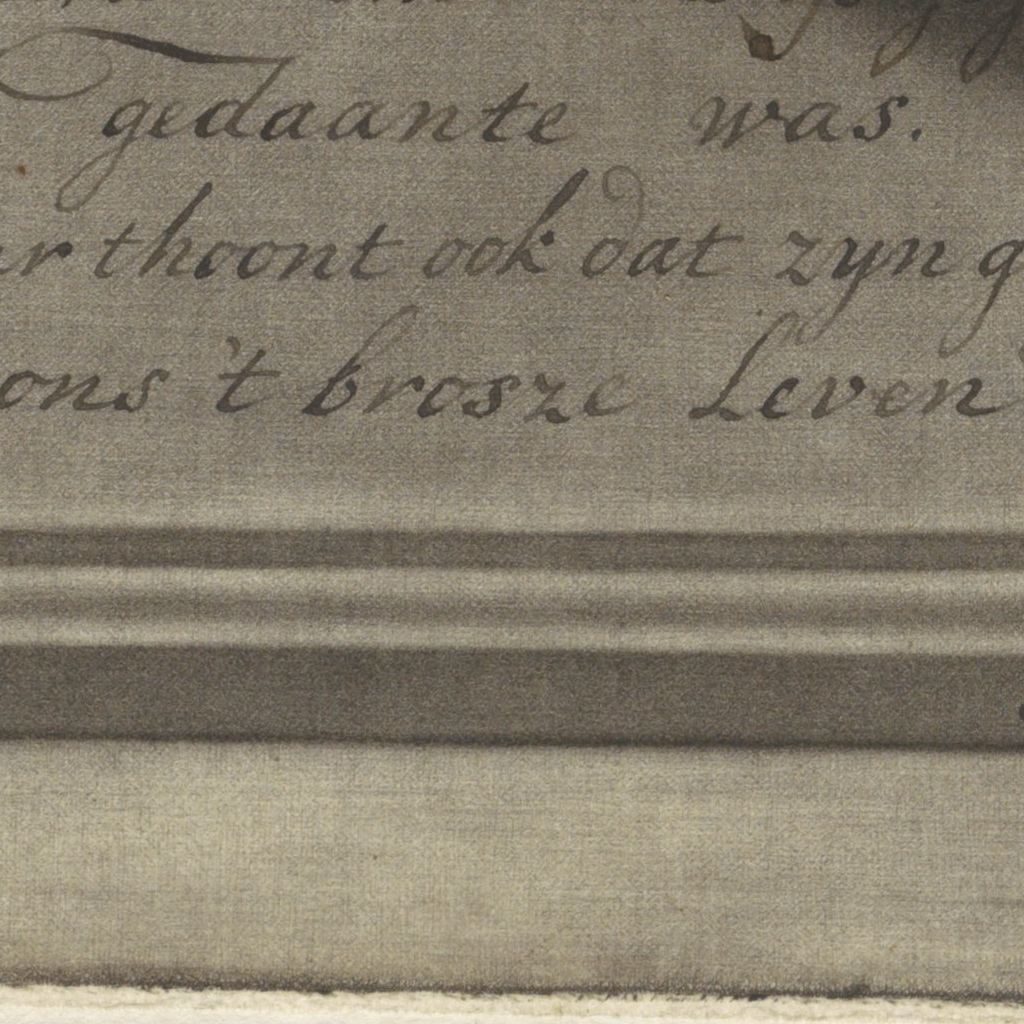 gedaante was.
thoont ook dat zyn
ons 't brosze Leven